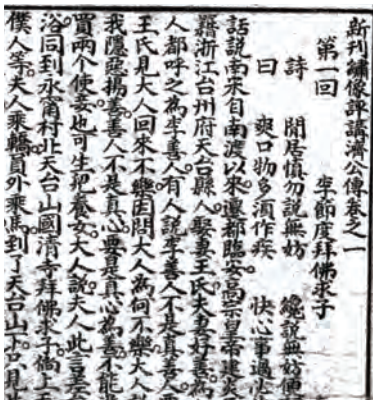 新刊繡像評講濟公傳卷之一
第一回 李節度拜佛求子
詩 閒居慎勿說無妨 纔說無妨便
曰 爽口物多須作疾 快心事過必
話說南宋自南渡以來遷都臨安高宗皇帝建炎
籍浙江台州府天台縣人娶妻王氏夫妻好善為
人都呼之為李善人有人說李善人不是真善人
王氏見大人回來不樂因問大人為何不樂大人
我隱惡揚善善人不是真心要是真心為善不能
買兩個使妾也可生兒養女大人說夫人此言差
浴同到永甯村北天台山國清寺拜佛求子倘上
僕人等夫人乘轎員外乘馬到了天台山下只見